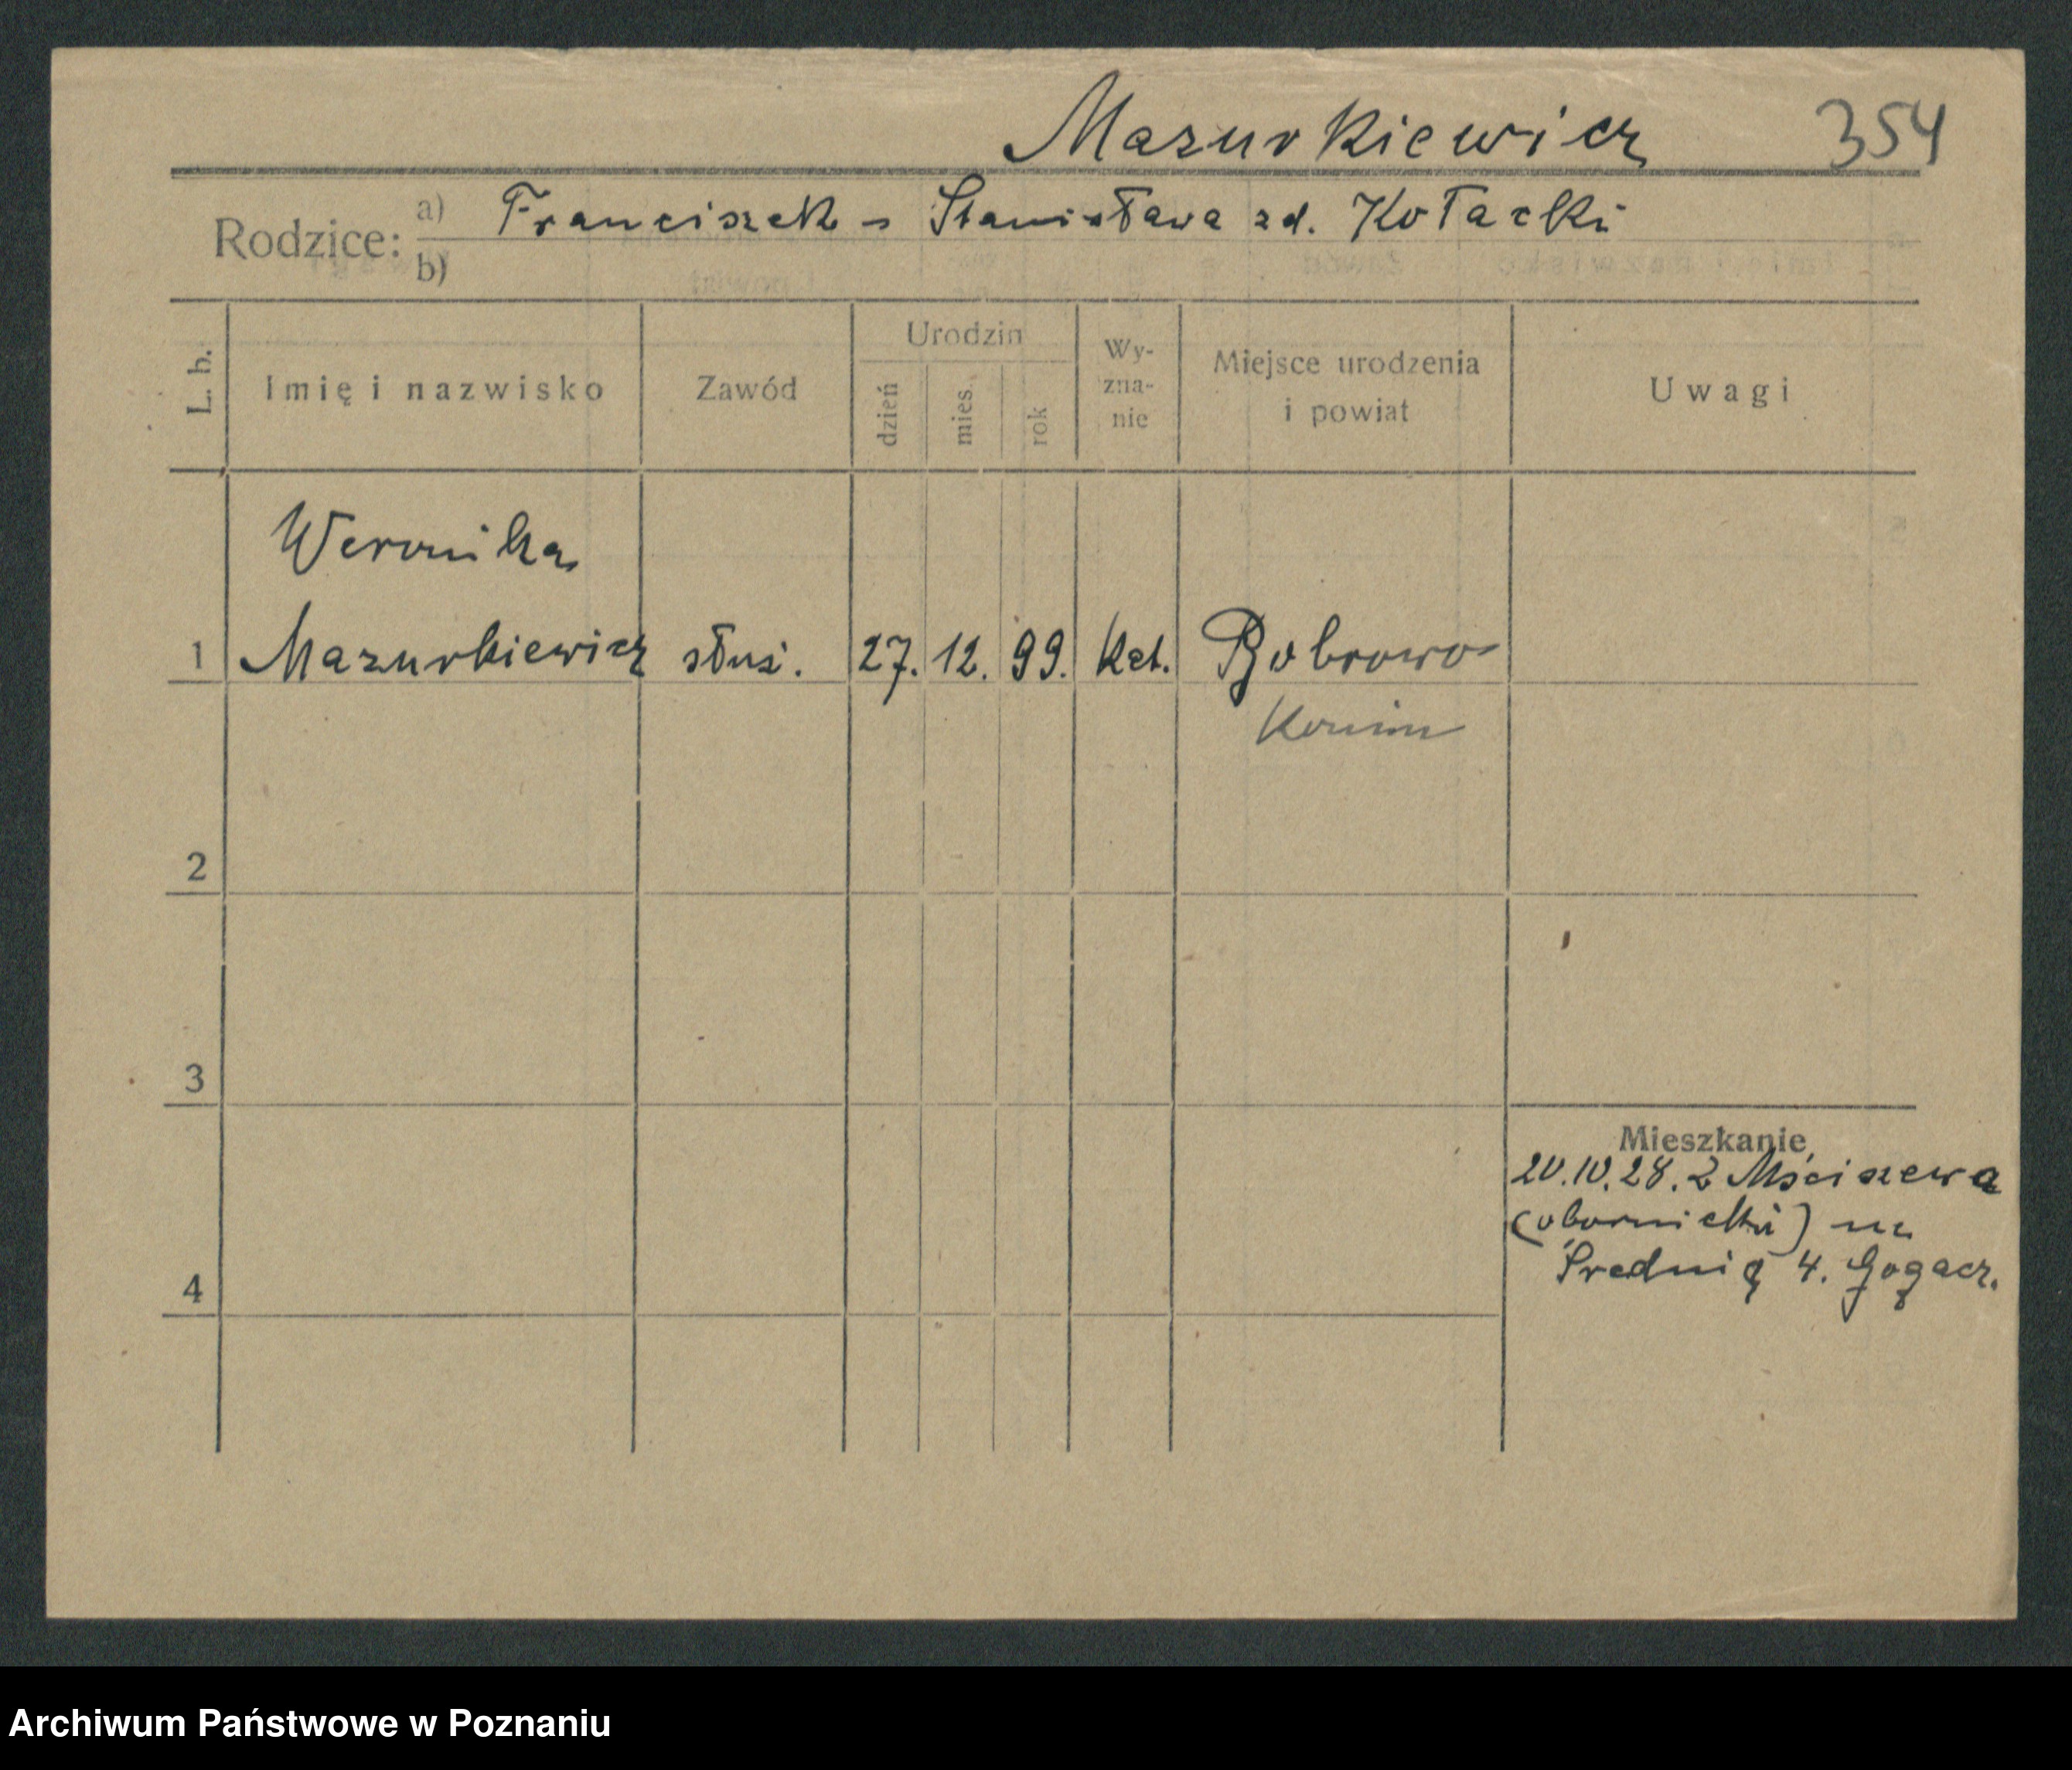 Mazurkiewicz 354
Rodzice: a) Franciszek - Stanisława zd. Kołacki
b)
L. b. Imię i nazwisko Zawód Urodzin dzień mies. rok Wy-zna-nie Miejsce urodzenia i powiat Uwagi
Weronika
1 Mazurkiewicz służ. 27. 12. 99. kat. Bobrowo
Konin
2
3
Mieszkanie
20.10.28. z Mściszewa
(obornicki) na
4 Średnią 4. Gogacz.
Archiwum Państwowe w Poznaniu